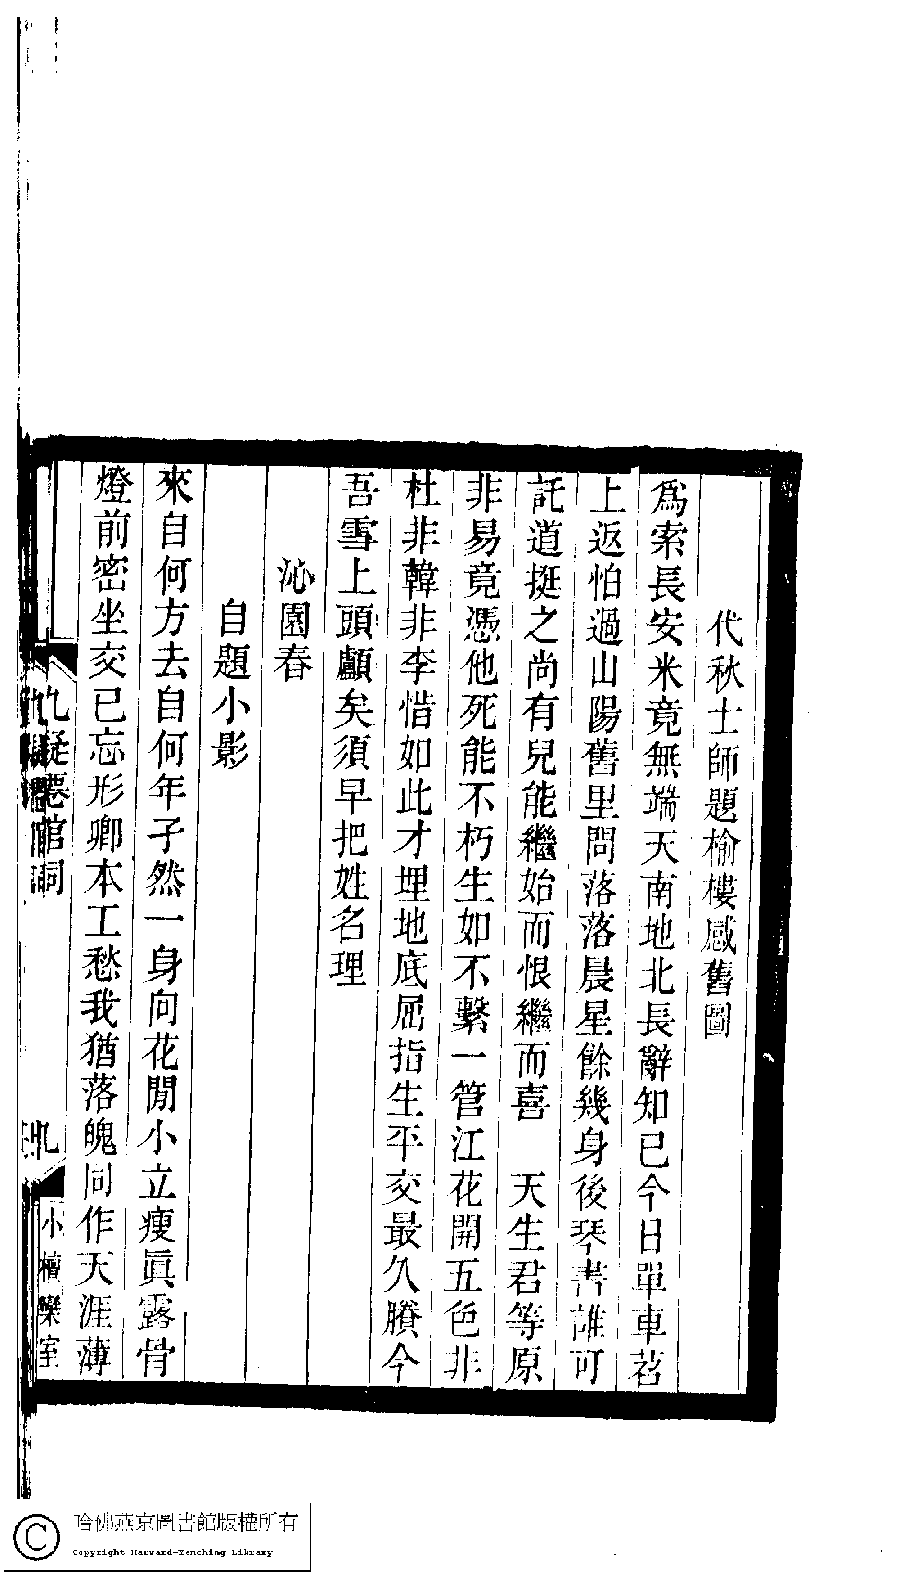 代秋士師題榆樓感舊圖
爲索長安米竟無端天南地北長辭知己今日單車茗
上返怕過山陽舊里問落落晨星餘幾身後琴書誰可
託道挺之尚有兒能繼始而恨繼而喜　天生君等原
非易竟憑他死能不朽生如不繫一管江花開五色非
杜非韓非李惜如此才埋地底屈指生平交最久賸今
吾雪上頭顱矣須早把姓名理
沁園春
自題小影
來自何方去自何年孑然一身向花閒小立瘦眞露骨
燈前密坐交已忘形卿本工愁我猶落魄同作天涯薄
九疑仙館詞
九
小檀欒室
哈佛燕京圖書館版權所有
Copyright Harvard-Yenching Library